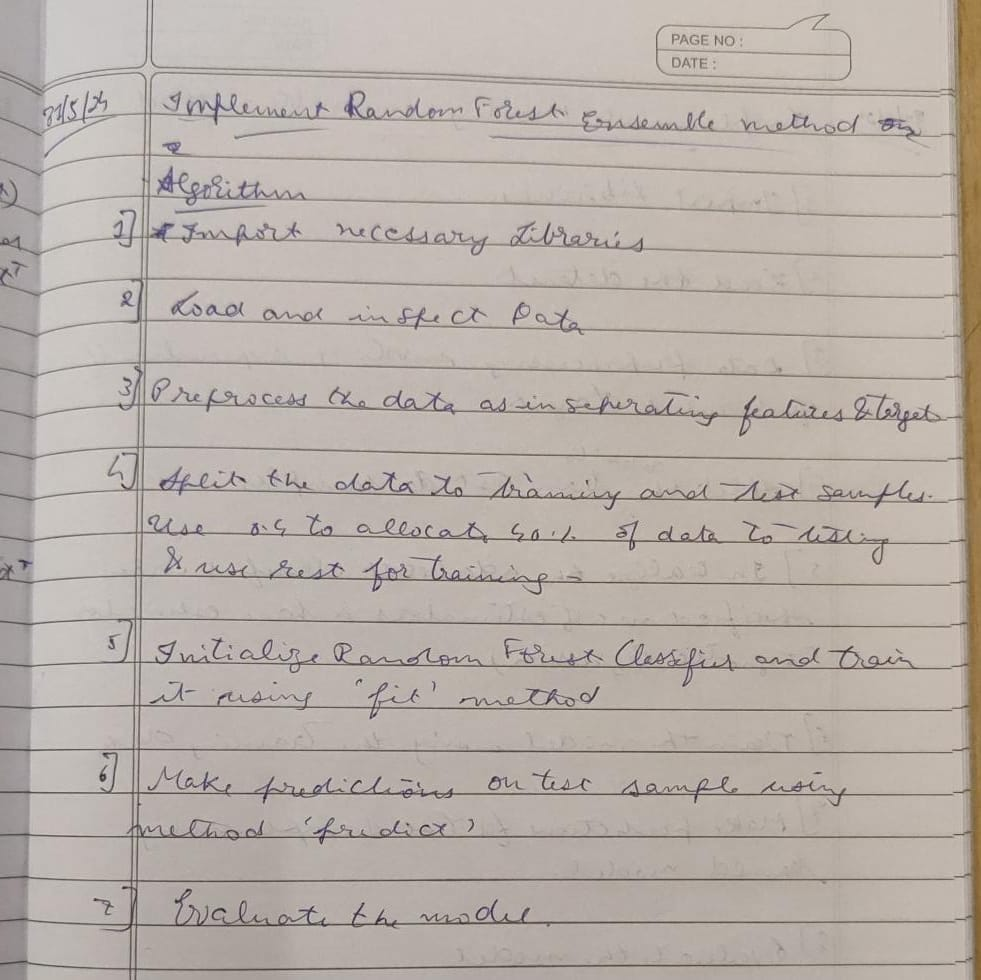 PAGE NO :
DATE :
31/5/24
Implement Random Forest Ensemble method
Algorithm
1] Import necessary Libraries
2] Load and inspect Data
3] Preprocess the data as in seperating features & target
4] Split the data to training and test samples.
Use 0.5 to allocate 50% of data to testing
& use rest for training -
5] Initialize Random Forest Classifier and train
it using 'fit' method
6] Make predictions on test sample using
method 'predict'
7] Evaluate the model.